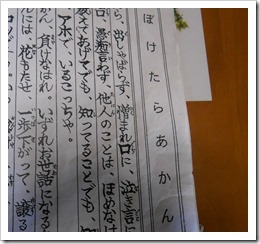 ぼけたらあかん
ら、出しゃばらず、憎まれ口に、泣き言に
口、愚痴言わず、他人のことは、ほめなは
えてあげてでも、知ってることでも、
アホで、いるこっちゃ。
かん、負けなはれ。いずれお世話になる
んには、花もたせ 一歩下がって、譲る